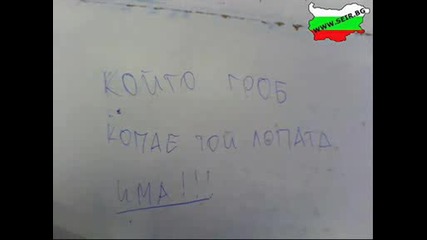 WWW.SEIR.BG
КОЙТО ГРОБ
КОПАЕ ТОЙ ЛОПАТА
ИМА!!!